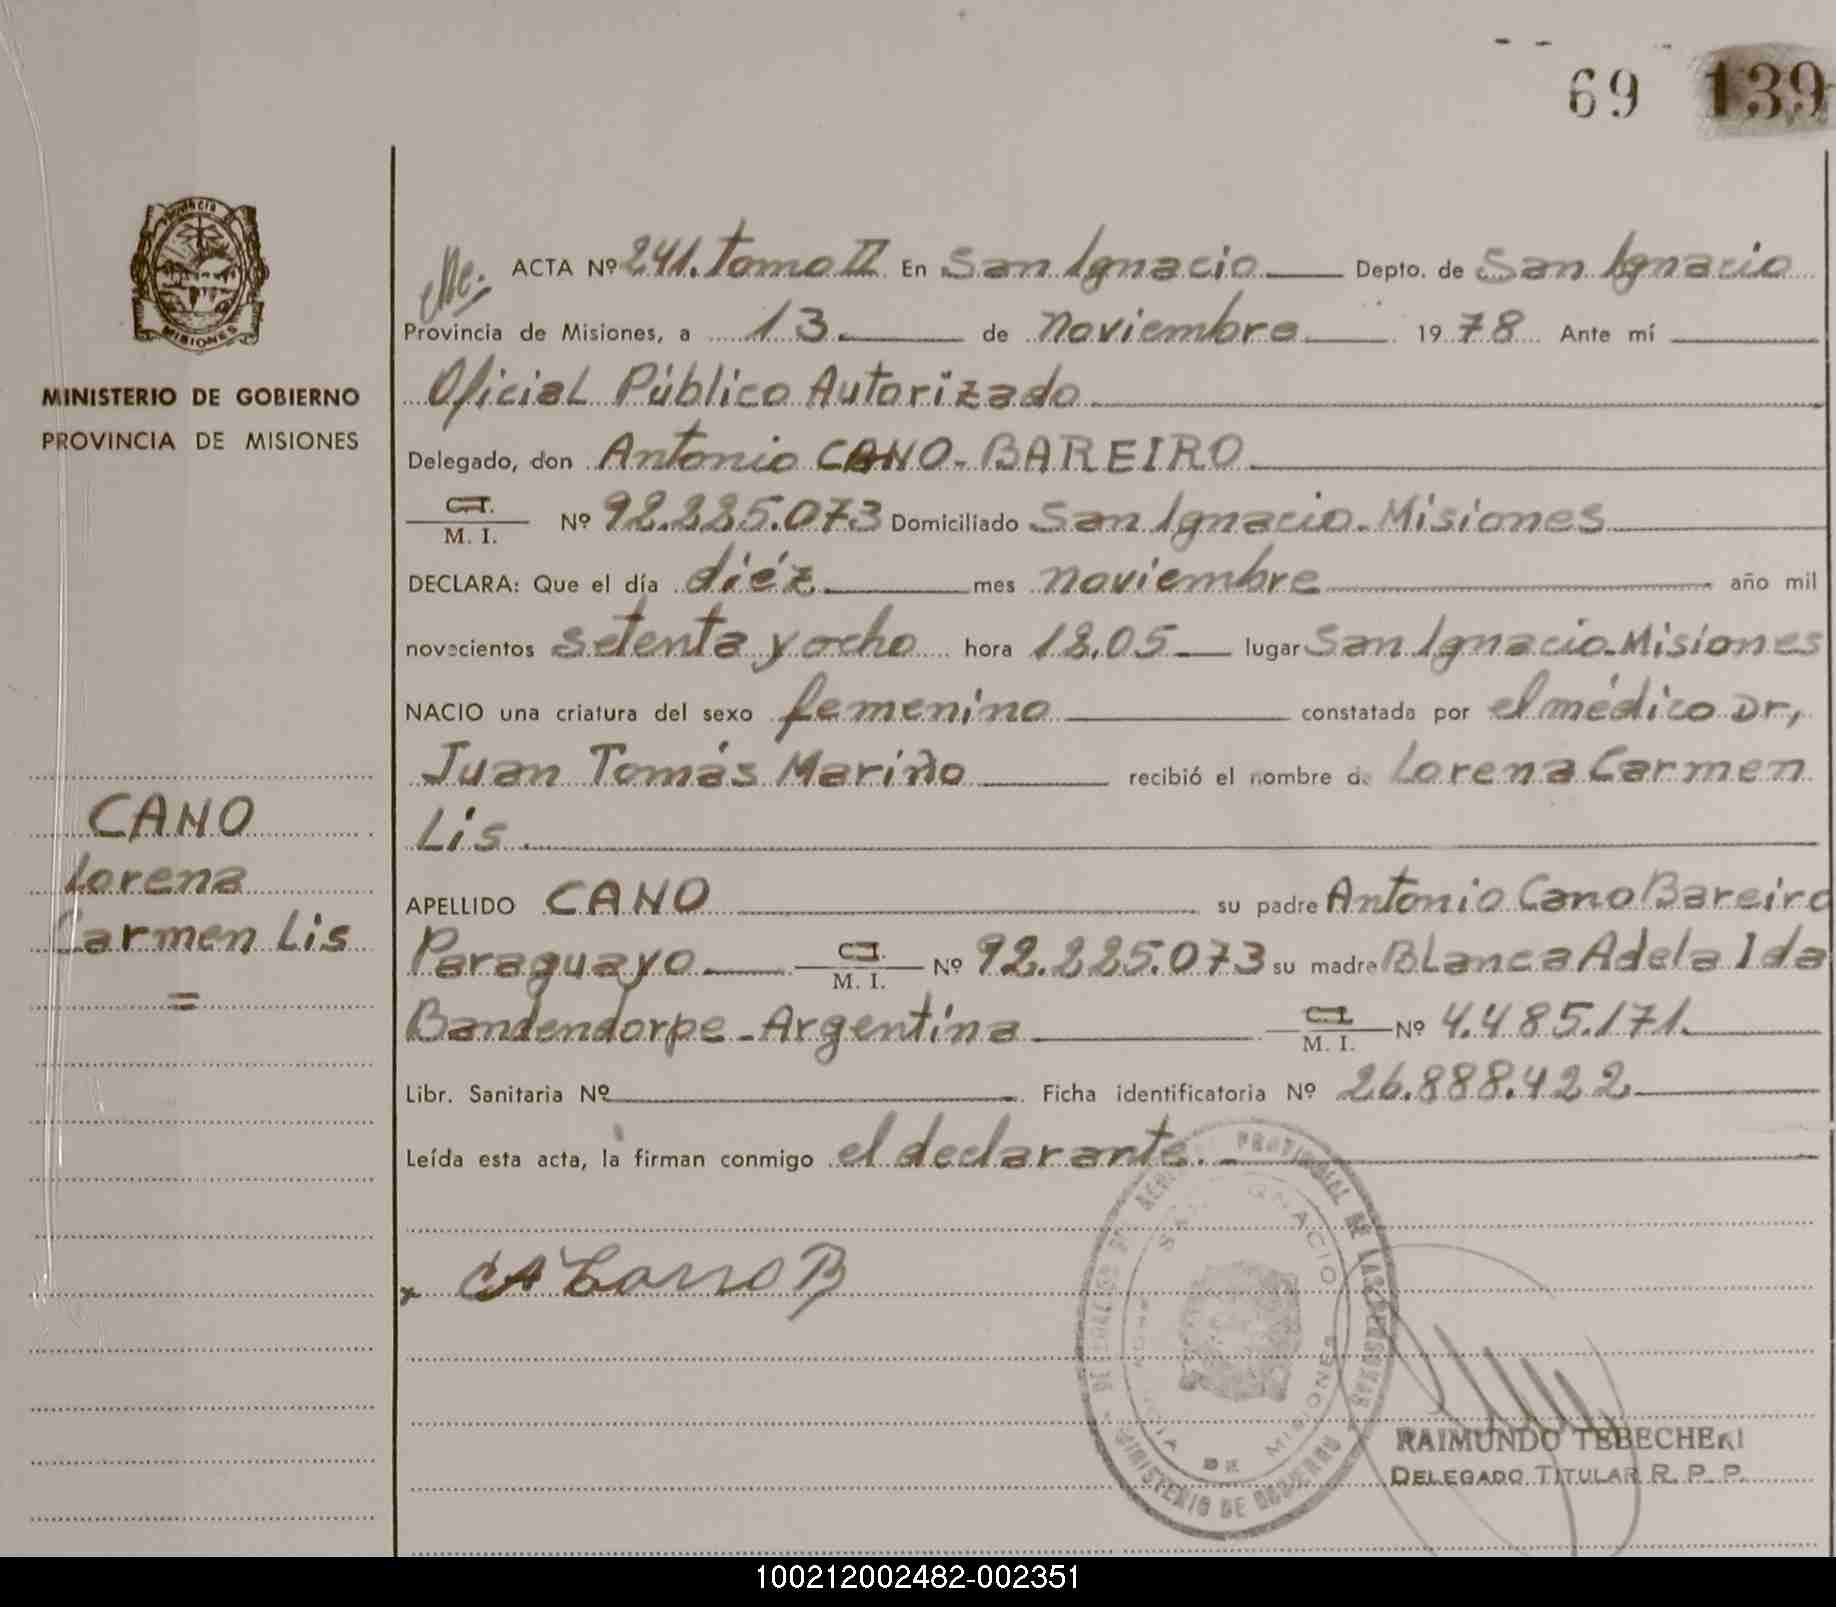 69 139
MINISTERIO DE GOBIERNO
PROVINCIA DE MISIONES
CANO
Lorena
Carmen Lis
=
ACTA Nº 241. Tomo II En San Ignacio Depto. de San Ignacio
Provincia de Misiones, a 13 de Noviembre 1978 Ante mí
Oficial Público Autorizado
Delegado, don Antonio CANO-BAREIRO
C.I.
M. I. Nº 92.225.073 Domiciliado San Ignacio-Misiones
DECLARA: Que el día diéz mes noviembre año mil
novecientos setenta y ocho hora 18,05 lugar San Ignacio-Misiones
NACIO una criatura del sexo femenino constatada por el médico Dr,
Juan Tomás Mariño recibió el nombre de Lorena Carmen
Lis
APELLIDO CANO su padre Antonio Cano Bareiro
Paraguayo C.I. M. I. Nº 92.225.073 su madre Blanca Adela Ida
Bandendorpe-Argentina C.I. M. I. Nº 4.485.171.
Libr. Sanitaria Nº Ficha identificatoria Nº 26.888.422
Leída esta acta, la firman conmigo el declarante.
MINISTERIO DE GOBIERNO
SAN IGNACIO
DE MISIONES
RAIMUNDO TEBECHEKI
DELEGADO TITULAR R. P. P.
100212002482-002351